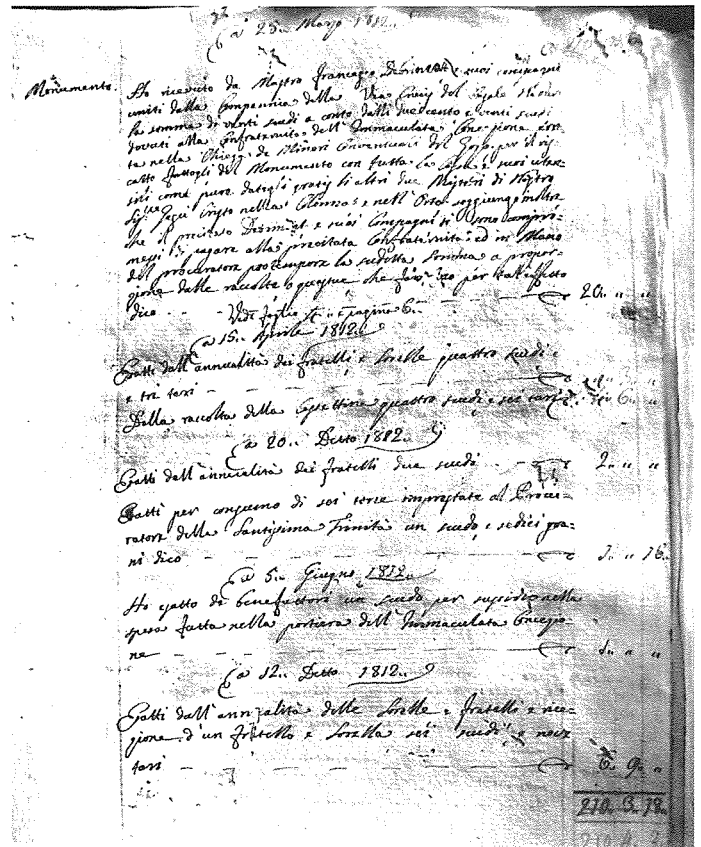 a 25.. Marzo 1812..
Monumento. Ho ricevuto da Mastro Francesco e suoi compagni
uniti dalla Compagnia della Via Crucis del
la somma di venti scudi a conto delli duecento e venti scudi
dovuti alla Confraternita dell'Immacolata Concezione eret-
ta nella Chiesa de Minori Conventuali del Gozo, per il
fattogli del Monumento con tutta la e suoi uten-
sili come pure datogli gratis li altri due Misteri di Nostro
Sig.re Gesù Cristo nella Colonna e nell'Orto, soggiungo inoltre
che il precitato e suoi Compagni si sono compro-
messi pagare alla precitata Confraternita ed in Mano
del procuratore protempore la sudetta somma a propor-
zione dalle raccolte o questue che per tale effetto
dico - - Vide foglio pagina 6.. 20.. " "
a 15.. Aprile 1812..
Esatti dall'annualità dei fratelli e Sorelle quattro scudi e
e tri tari
Dalla raccolta della Capsettina quattro scudi e sei tari 6.. "
a 20.. Detto 1812..
Esatti dall'annualità dei fratelli due scudi 2.. " "
Esatti per consumo di sei torce imprestate al Procu-
ratore della Santissima Trinità un scudo e sedici gra-
ni dico 1.. " 16..
a 5.. Giugno 1812..
Ho esatto di benefattori un scudo per supsidio nella
spesa fatta nella portiera dell'Immaculata Concezio-
ne 1.. " "
a 12.. Detto 1812..
Esatti dall'annualità delle Sorelle e fratelli e rice-
zione d'un fratello e Sorella sei scudi e nove
tari 6.. 9.. "
210.. 3.. 18..